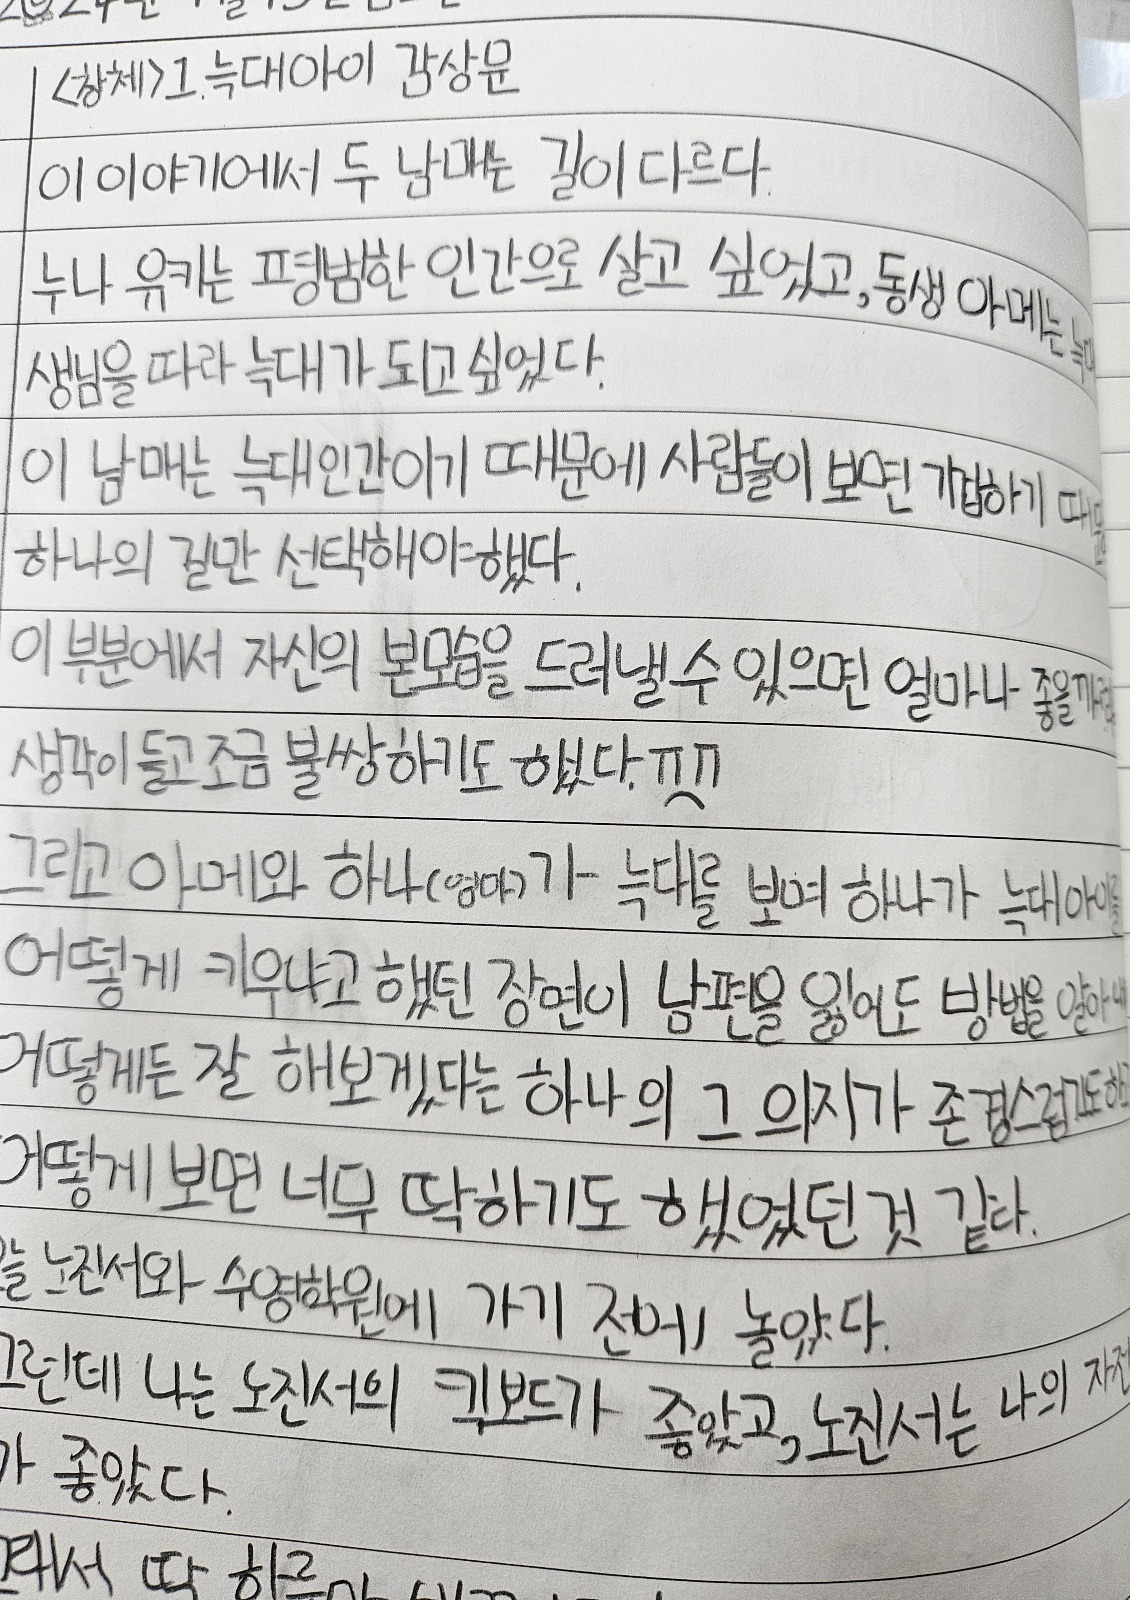 <창체>1.늑대아이 감상문
이 이야기에서 두 남매는 길이 다르다.
누나 유키는 평범한 인간으로 살고 싶었고,동생 아메는
생님을 따라 늑대가 되고 싶었다.
이 남매는 늑대인간이기 때문에 사람들이 보면 기겁하기
하나의 길만 선택해야했다.
이 부분에서 자신의 본모습을 드러낼 수 있으면 얼마나
생각이 들고 조금 불쌍하기도 했다.ㅠㅠ
그리고 아메와 하나(엄마)가 늑대를 보며 하나가 늑대아이를
어떻게 키우냐고 했던 장면이 남편을 잃어도 방법을
어떻게든 잘 해보겠다는 하나의 그 의지가
어떻게 보면 너무 딱하기도 했었던 것 같다.
노진서와 수영학원에 가기 전에 놀았다.
그런데 나는 노진서의 킥보드가 좋았고,노진서는 나의
가 좋았다.
딱